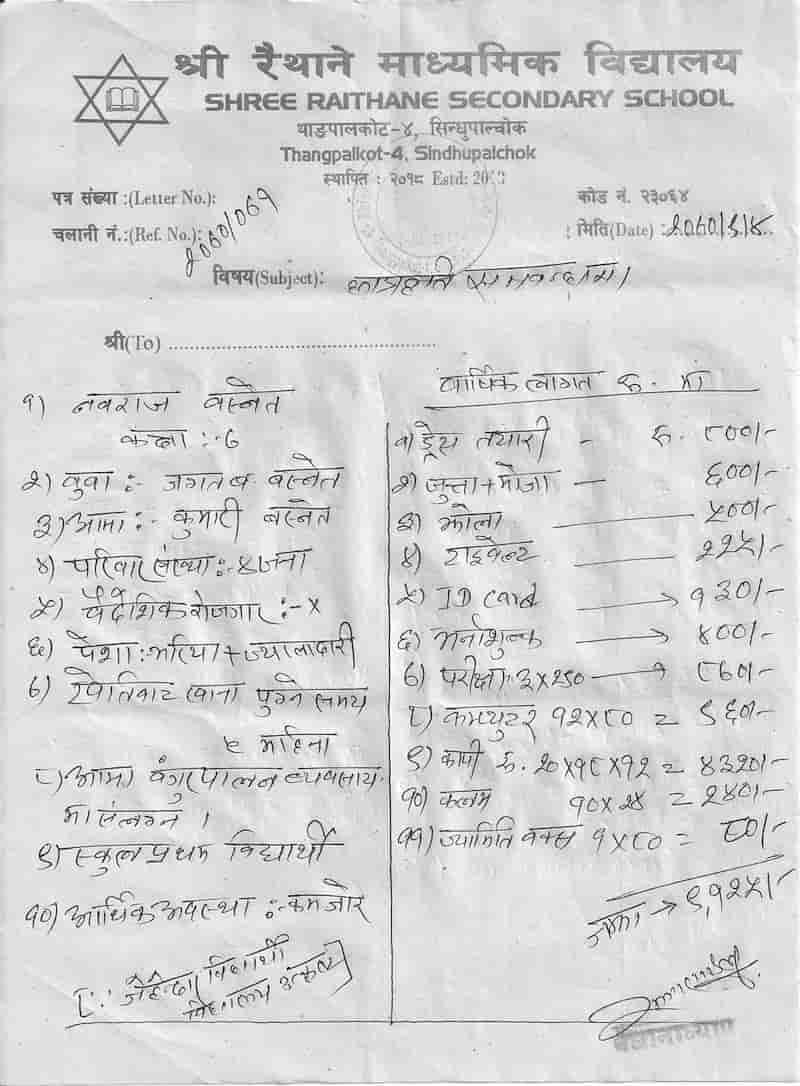 श्री रैथाने माध्यमिक विद्यालय
SHREE RAITHANE SECONDARY SCHOOL
थाङपालकोट-४, सिन्धुपाल्चोक
Thangpalkot-4, Sindhupalchok
स्थापित : २०१८ Estd:
पत्र संख्या :(Letter No.):
कोड नं. २३०६४
चलानी नं.:(Ref. No.): २०७०/०७१
मिति(Date) :
विषय(Subject):
श्री(To)
१) नवराज बस्नेत
कक्षा :- ७
२) बुवा :- जगत ब. बस्नेत
३) आमा :- कुमारी बस्नेत
४) परिवार संख्या :- ४ जना
५) बैदेशिक रोजगार :- x
६) पेशा : भरिया + ज्यालादारी
७) खेतिबाट खाना पुग्ने समय
५ महिना
८) आमा बंगुरपालन व्यवसाय
मा संलग्न ।
९) स्कुल प्रथम विद्यार्थी
१०) आर्थिक अवस्था :- कमजोर
विद्यार्थी
विद्यालय
वार्षिक लागत रु. मा
१) ड्रेस तयारी - रु. ८००/-
२) जुत्ता + मोजा — ६००/-
३) झोला — ५००/-
४) टाइबेल्ट — २२५/-
५) ID card → १३०/-
६) भर्नाशुल्क → ४००/-
७) परीक्षा: ३ x २९० → ८७०/-
८) कम्प्युटर १२ x ८० = ९६०/-
९) कापी रु. २० x १८ x १२ = ४३२०/-
१०) कलम १० x २४ = २४०/-
११) ज्यामिति बक्स १ x ८० = ८०/-
जम्मा → ९,१२५/-
प्रधानाध्यापक